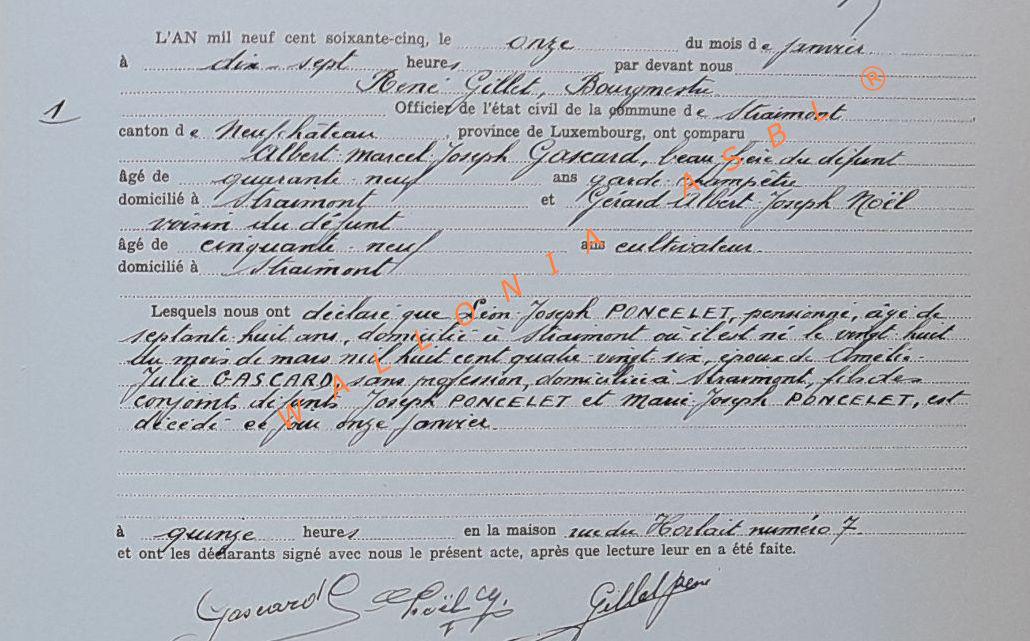 L'AN mil neuf cent soixante-cinq, le onze du mois de janvier
à dix-sept heures par devant nous
René Gillet, Bourgmestre
1 Officier de l'état civil de la commune de Straimont
canton de Neufchâteau, province de Luxembourg, ont comparu
Albert Marcel Joseph Gascard, beau-frère du défunt
âgé de quarante-neuf ans garde champêtre
domicilié à Straimont et Gérard Albert Joseph Noël
voisin du défunt
âgé de cinquante-neuf ans cultivateur
domicilié à Straimont
Lesquels nous ont déclaré que Léon Joseph PONCELET, pensionné, âgé de
septante-huit ans, domicilié à Straimont où il est né le vingt-huit
du mois de mars mil huit cent quatre-vingt-six, époux de Amélie-
Julie GASCARD, sans profession, domiciliée à Straimont, fils des
conjoints défunts Joseph PONCELET et Marie Joseph PONCELET, est
décédé ce jour onze janvier
à quinze heures en la maison rue du numéro 7
et ont les déclarants signé avec nous le présent acte, après que lecture leur en a été faite.
Gascard Noël Gillet René
WALLONIA ASBL ®